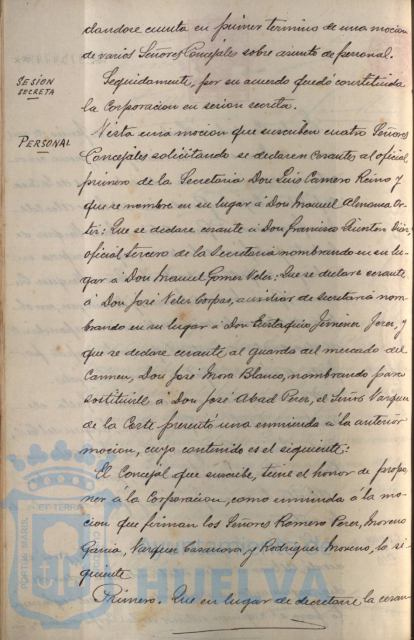 dandose cuenta en primer termino de una mocion
de varios Señores Concejales sobre asunto de personal.
SESION
SECRETA
Seguidamente, por su acuerdo quedó constituida
la Corporacion en sesion secreta.
PERSONAL
Vista una mocion que suscriben cuatro Señores
Concejales solicitando se declaren cesantes, al oficial
primero de la Secretaria Don Luis Camero Reino y
que se nombre en su lugar á Don Manuel Alemania Or-
tiz: Que se declare cesante á Don Francisco Quintero Diaz,
oficial tercero de la Secretaria nombrando en su lu-
gar á Don Manuel Gomez Velez: Que se declare cesante
á Don José Velez Corpas, auxiliar de Secretaria nom-
brando en su lugar á Don Eustaquio Jimenez Jerez, y
que se declare cesante al guarda del mercado del
Carmen, Don José Mora Blanco, nombrando para
sostituirle á Don José Abad Perez, el Señor Vazquez
de la Corte presentó una enmienda á la anterior
mocion, cuyo contenido es el siguiente:
El Concejal que suscribe, tiene el honor de propo-
ner á la Corporacion, como enmienda á la mo-
cion que firman los Señores Romero Perez, Moreno
Garcia, Vazquez Casanova, y Rodriguez Moreno, lo si-
guiente
Primero. Que en lugar de decretarse la cesan-
PORTUS MARIS
ET TERRÆ
Ayuntamiento de
HUELVA